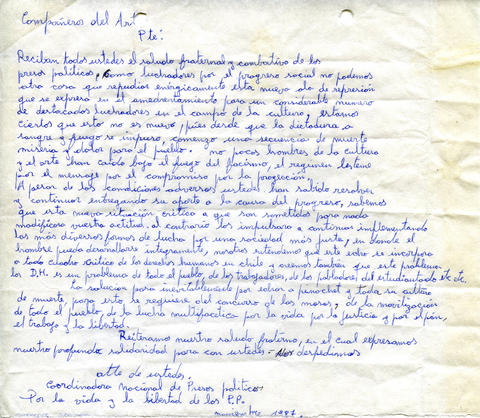 Compañeros del Art
Pte:
Reciban todos ustedes el saludo fraternal y combativo de los
presos políticos, como luchadores por el progreso social no podemos
otra cosa que repudiar enérgicamente esta nueva ola de represión
que se expresa en el amedrentamiento para un considerable numero
de destacados luchadores en el campo de la cultura, estamos
ciertos que esto no es nuevo, pues desde que la dictadura a
sangre y fuego se impuso, comenzo una secuencia de muerte
miseria y dolor para el pueblo. no pocos hombres de la cultura
y el arte han caido bajo el fuego del facismo, el regimen les teme
por el mensaje por el compromiso por la proyección.
A pesar de las condiciones adversas ustedes han sabido resolver
y continuar entregando su aporte a la causa del progreso, sabemos
que esta nueva situación critica a que son sometidos para nada
modificara vuestra actitud. al contrario los impulsara a continuar implementando
las más diversas formas de lucha por una sociedad más justa, en donde el
hombre pueda desarrollarse integramente, nosotros entendemos que este se incorpora
a todo cuadro critico de los derechos humanos en chile y creemos tambien que este problema
los D.H. es un problema de todo el pueblo, de los trabajadores, de los pobladores del estudiantado etc etc.
La solución pasa inevitablemente por echar a pinochet y toda su cultura
de muerte, para esto se requiere del concurso de las masas, de la movilización
de todo el pueblo, de la lucha multifacetica por la vida por la justicia y por el pan,
el trabajo y la libertad.
Reiteramos nuestro saludo fraterno, en el cual expresamos
nuestra profunda solidaridad para con ustedes - Nos despedimos
atte de ustedes.
Coordinadora Nacional de Presos politicos
Por la vida y la libertad de los P.P.
noviembre 1987.